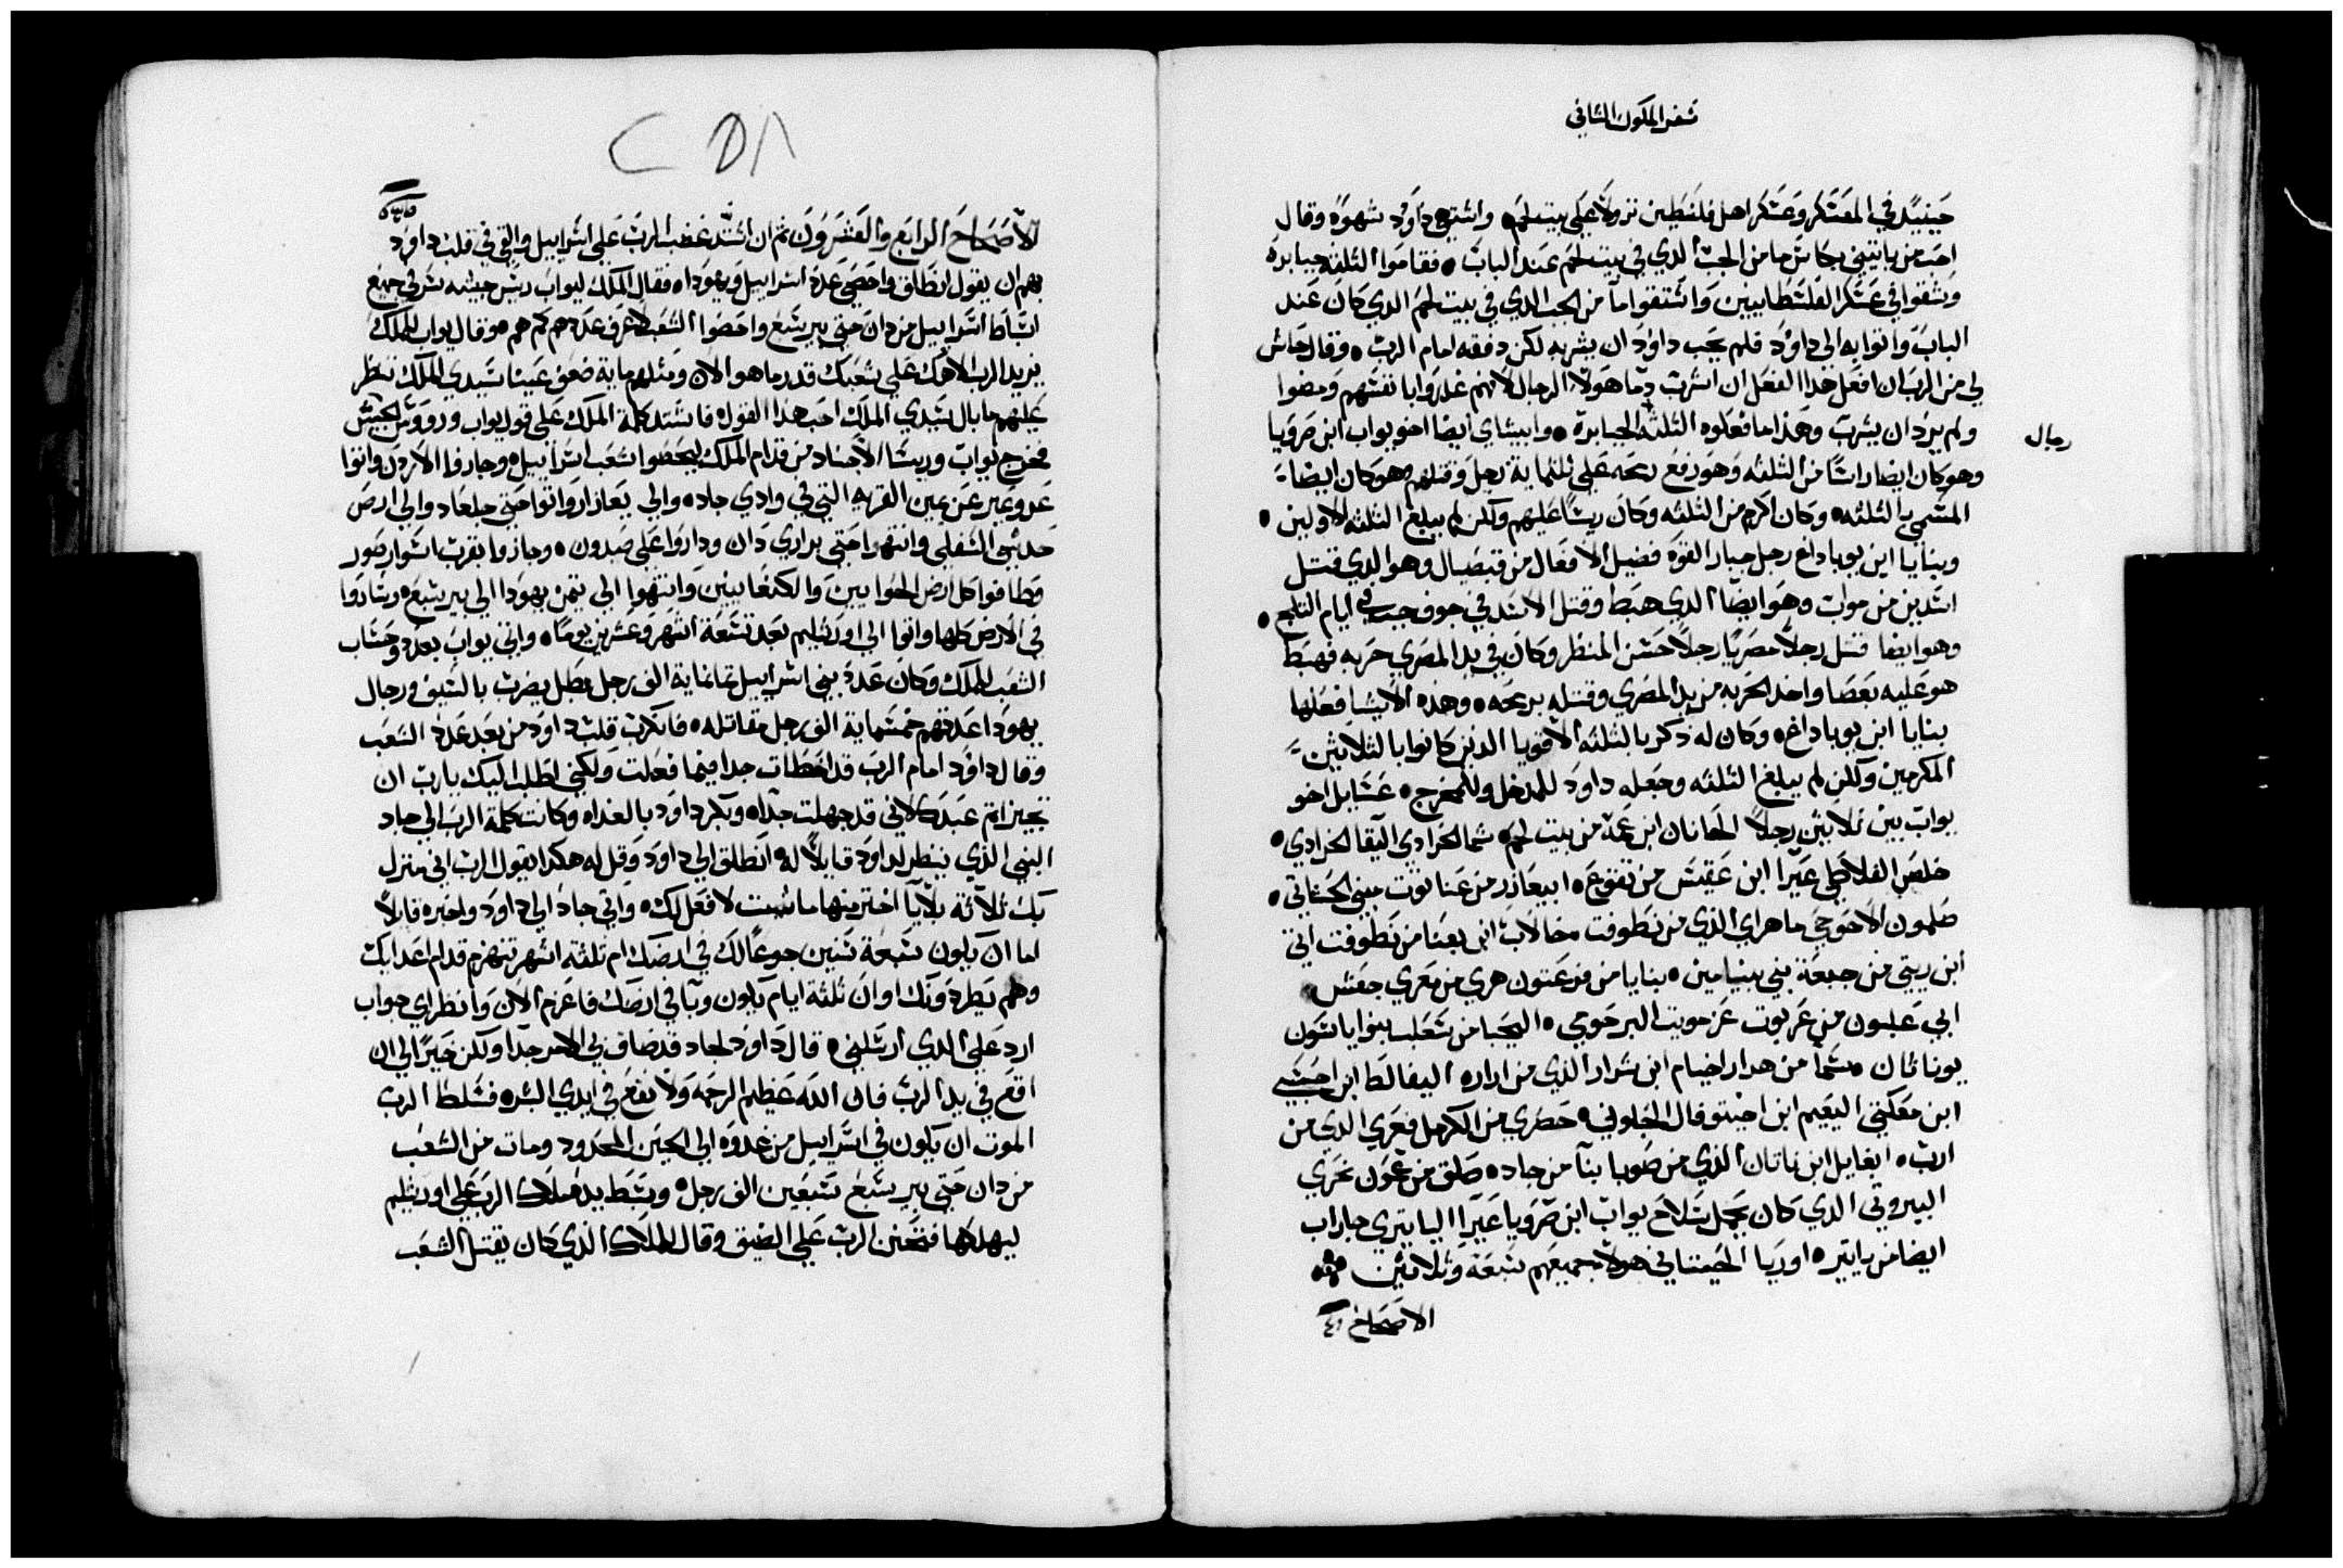 سفر الملوك الثاني
حينيدٍ في المعسكر وعسكر اهل فلسطين نزولاً على بيت لحم واشتهى داوُد شهوه وقال
احد من ياتيني بكاس ما من الجب الدي في بيت لحم عند الباب فقاموا التلته جبابره
وشقوا في عسكر الفلسطانيين واستقوا ما من الجب الدي في بيت لحم الدي كان عند
الباب واتوا به الي داوُد فلم يحب داوُد ان يشربه لكن دفقه امام الرب وقال حاش
لي من الرب ان افعل هدا الفعل ان اشرب دما هولا الرجال لانهم غدروا بانفسهم ومضوا
رجال
ولم يرد ان يشرب وهذا ما فعلوه التلته الجبابرة وابيشاي ايضا اخو يواب ابن صرويا
وهو كان ايضا راسًا من التلته وهو رفع رمحه على تلتماية رجل وقتلهم وهو كان ايضا
المسمى بالتلته وكان اكرم من التلته وكان ريسًا عليهم ولكن لم يبلغ التلته الاولين
وبنايا ابن يوياداع رجل جبار القوة فضيل الافعال من قبصيال وهو الدي قتل
اسدين من مواب وهو ايضًا الدي هبط وقتل الاسد في جوف جب في ايام التلج
وهو ايضا قتل رجلاً مصريًا رجلاً حسن المنظر وكان في يد المصري حربه فهبط
هو عليه بعصا واخد الحربه من يد المصري وقتله برمحه وهده الاشيا فعلها
بنايا ابن يوياداع وكان له ذكر بالتلته الاقويا الدين كانوا بالثلاثين
المكرمين ولكن لم يبلغ التلته وجعله داود للمدخل وللمخرج عسايل اخو
يواب بين ثلاثين رجلاً الحانان ابن عمة من بيت لحم شما الحرادي اليقا الحرادي
حلص الفلاطي عيرا ابن عقيس من تقوع ابيعازر من عناتوت مبني الحشاتي
صلمون الاحوحي ماهراي الذي من نطوفت حالاب ابن بعنا من نطوفت اتي
ابن ريبي من جبعة بني بنيامين بنايا من فرعتون هري من معري جعش
ابي علبون من عربوت عزمويت البرحومي اليحبا من شعلب بنوا ياشون
يوناتان شما من هدار احيام ابن شرار الذي من ارار اليفالط ابن احبسي
ابن معكتي اليعيم ابن احيتوفال الجلوني حصري من الكرمل فعري الدي من
ارب ايغايل ابن ناتان الذي من صوبا بنا من جاد صلق من عمون نحري
البيروتي الدي كان يحمل سلاح يواب ابن صرويا عيرا اليايتري جاراب
ايضا من يايتير اوريا الحيتاني هولا جميعهم سبعة وثلاثين
الاصحاح ٢٤
الاصحاح الرابع والعشرون ثم ان اشتد غضب الرب على اسراييل والقي في قلب داود
بهم ان يقول انطلق واحصي عدد اسراييل ويهودا فقال الملك ليواب ريس جيشه سر في جميع
اسباط اسراييل من دان حتى بير شبع واحصوا الشعب لاعرف عددهم كم هم وقال يواب للملك
يزيد الرب الاهك على شعبك قدر ما هو الان ومثلهم ماية ضعف عينا سيدي الملك تنظر
عليهم ما بال سيدي الملك احب هدا القول فاشتد كلمة الملك على قول يواب وروس الجيش
فخرج يواب وريسا الاجناد من قدام الملك ليحصوا شعب اسراييل وجازوا الاردن واتوا
عروعير عن يمين القريه التي في وادي جاد والي يعازار واتوا حتى جلعاد والي ارض
حدشي السفلي وانتهوا حتى براري دان وداروا على صيدون وجازوا بقرب اسوار صور
وطافوا كل ارض الحوايين والكنعانيين وانتهوا الى تيمن يهودا الي بير شبع وساروا
في الارض كلها واتوا الي اورشليم بعد تسعة اشهر وعشرين يومًا واتي يواب بعدد وحساب
الشعب للملك وكان عدد بني اسراييل تمانماية الف رجل بطل يضرب بالسيف ورجال
يهودا عدتهم خمسماية الف رجل مقاتله فانكرب قلب داود من بعد عدد الشعب
وقال داود امام الرب قد اخطات جدا فيما فعلت ولكني اطلب اليك يارب ان
تجيز اتم عبدك لاني قد جهلت جدا وبكر داود بالغداه وكانت كلمة الرب الي جاد
النبي الذي ينظر لداود قايلاً له انطلق الي داود وقل له هكدا يقول الرب اني منزل
بك ثلاثة بلايا اختر منها ما شيت لافعل لك واتي جاد الي داود واخبره قايلاً
اما ان يكون سبعة سنين جوعًا لك في ارضك ام تلتة اشهر تنهزم قدام اعدايك
وهم يطردونك او ان ثلثة ايام يكون وبا في ارضك فاعزم الان وانظر اي جواب
ارد على الذي ارسلني قال داود لجاد قد ضاق بي الامر جدا ولكن خيرًا لي ان
اقع في يد الرب فان الله عظيم الرحمه ولا نقع في ايدي البشر فسلط الرب
الموت ان يكون في اسراييل من غدوه الي الحين المحدود ومات من الشعب
من دان حتى بير شبع سبعين الف رجل وبسط يد ملاك الرب على اورشليم
ليهلكها فتحنن الرب على الضيق وقال للملاك الذي كان يقتل الشعب